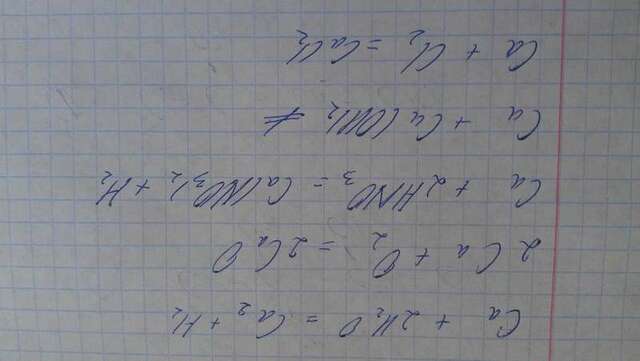 Ca + 2H₂O = Ca₂ + H₂
2Ca + O₂ = 2CaO
Ca + 2HNO₃ = Ca(NO₃)₂ + H₂
Ca + Cu(OH)₂ ≠
Ca + Cl₂ = CaCl₂